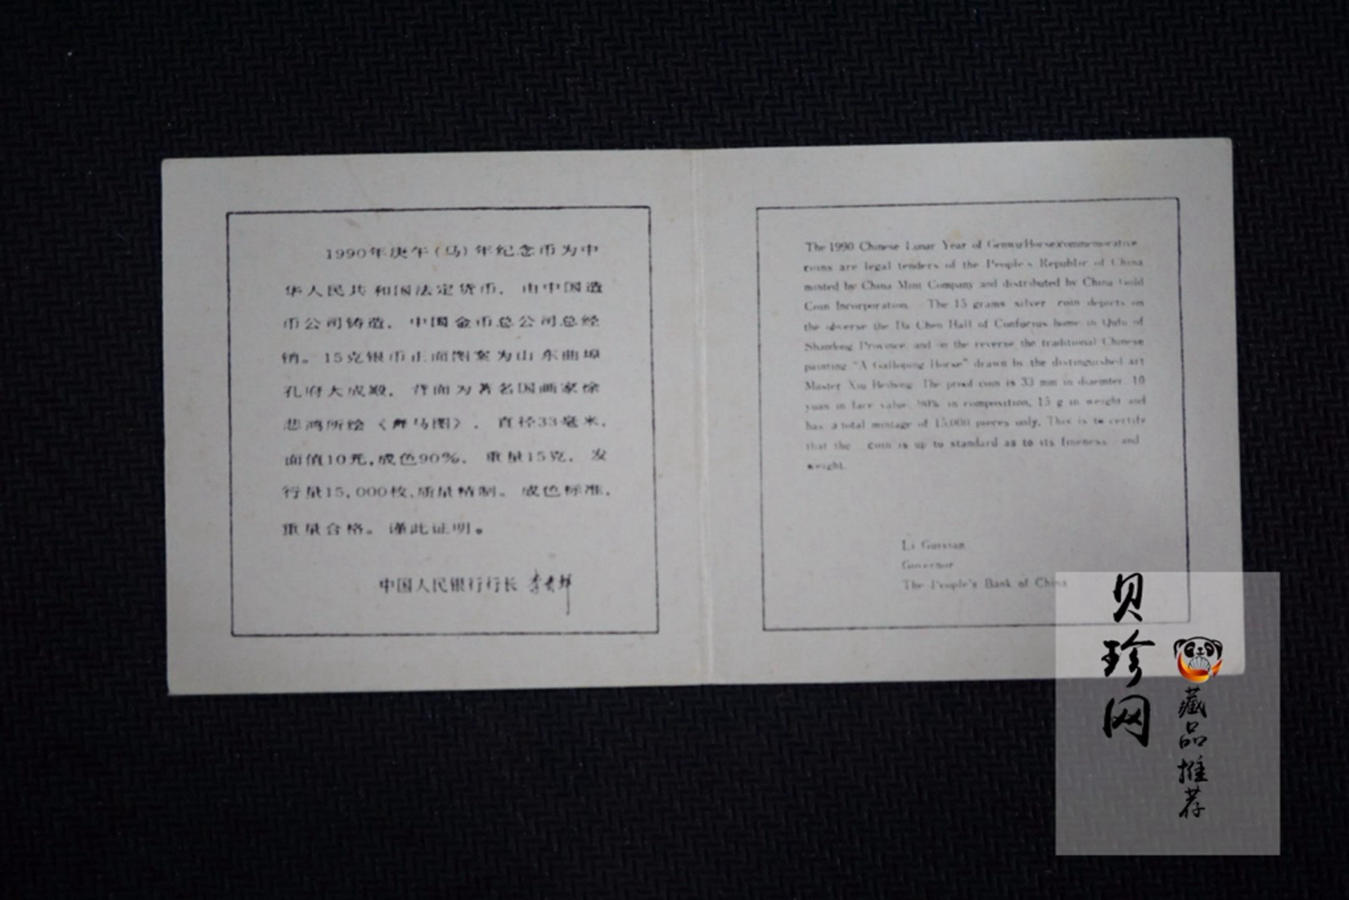 1990年庚午(马)年纪念币为中
华人民共和国法定货币，由中国造
币公司铸造，中国金币总公司总经
销。15克银币正面图案为山东曲埠
孔府大成殿，背面为著名国画家徐
悲鸿所绘《奔马图》，直径33毫米，
面值10元，成色90%，重量15克，发
行量15,000枚，质量精制。成色标准，
重量合格。谨此证明。
中国人民银行行长 李贵鲜
The 1990 Chinese Lunar Year of Genwu(Horse)commemorative
coins are legal tenders of the People's Republic of China
minted by China Mint Company and distributed by China Gold
Coin Incorporation. The 15 grams silver coin depicts on
the obverse the Da Chen Hall of Confucius home in Qufu of
Shandong Province and on the reverse the traditional Chinese
painting "A Galloping Horse" drawn by the distinguished art
Master Xu Beihong. The proof coin is 33 mm in diameter, 10
yuan in face value, 90% in composition, 15 g in weight and
has a total mintage of 15,000 pieces only. This is to certify
that the coin is up to standard as to its fineness and
weight.
Li Guixian
Governor
The People's Bank of China
贝珍网
藏品推荐